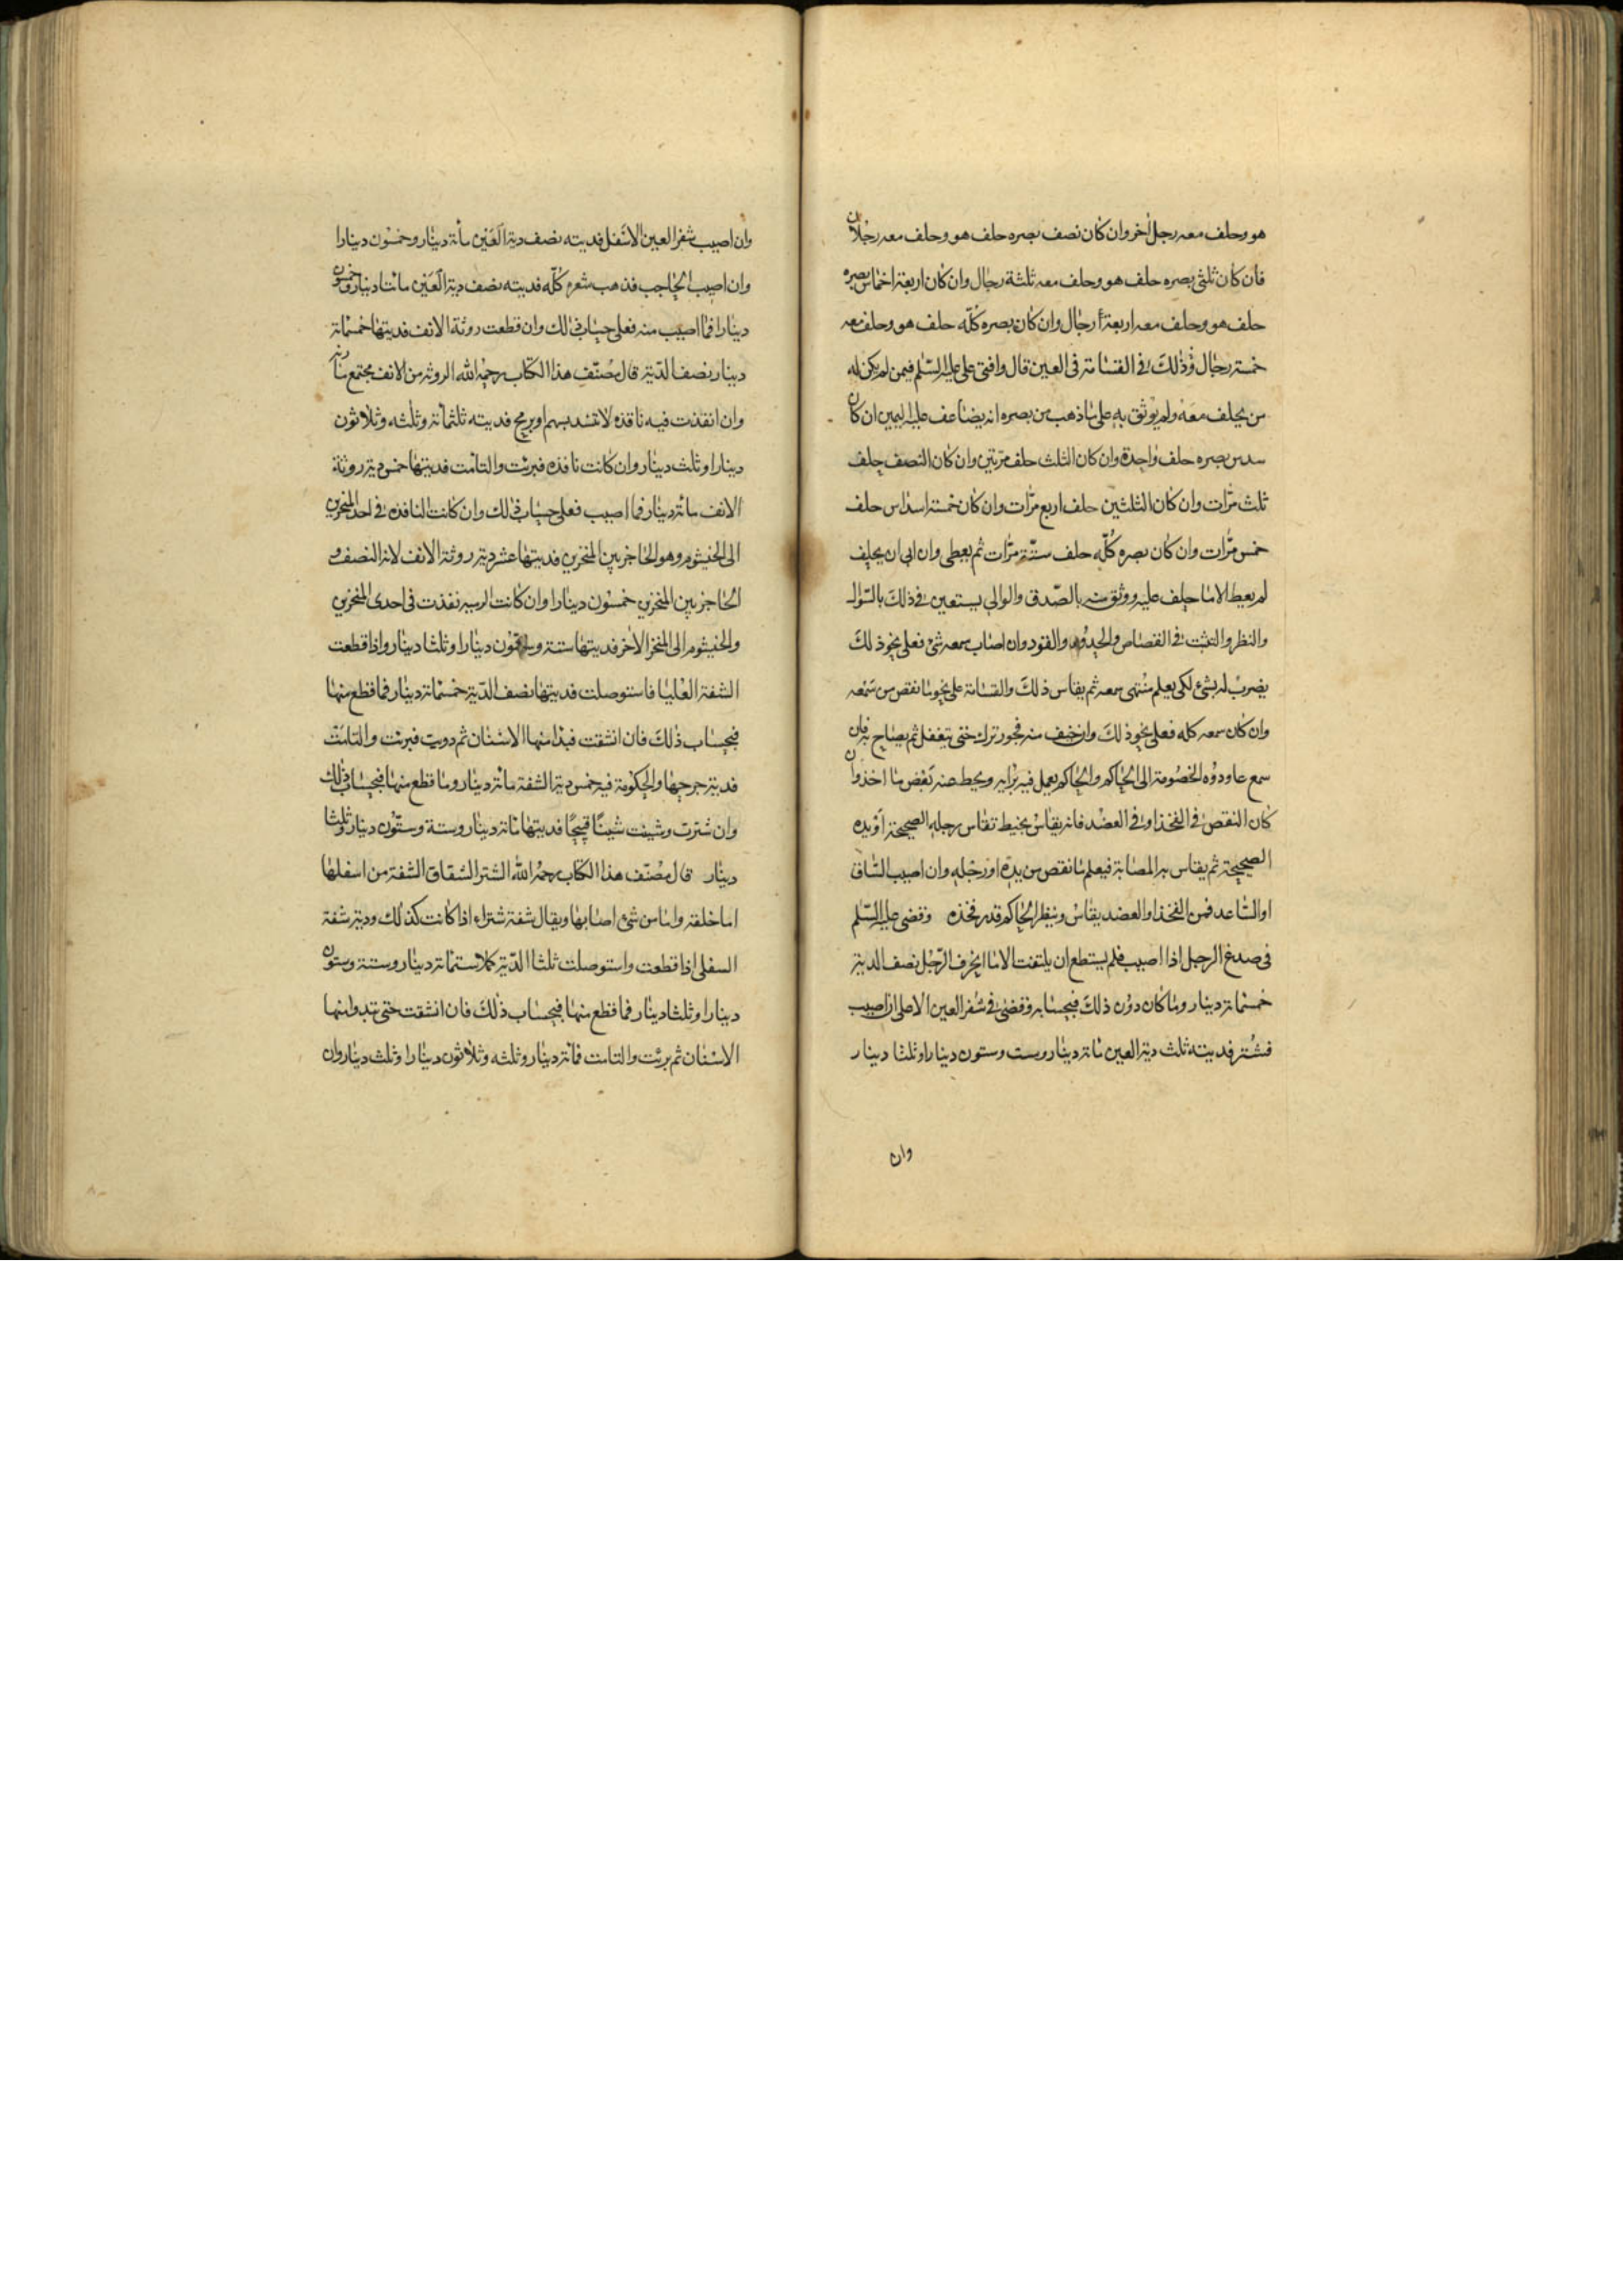 هو وحلف معه رجل اخر وان كان نصف بصره حلف هو وحلف معه رجلان
فان كان ثلثى بصره حلف هو وحلف معه ثلثة رجال وان كان اربعة اخماس بصره
حلف هو وحلف معه اربعة رجال وان كان بصره كلّه حلف هو وحلف معه
خمسة رجال وذلك فى القسامة فى العين قال وافتى على عليه السّلم فيمن لم يكن له
من يحلف معه ولم يوثق به على ما ذهب من بصره انه يضاعف عليه اليمين ان كان
سدس بصره حلف واحدة وان كان الثلث حلف مرّتين وان كان النصف حلف
ثلث مرّات وان كان الثلثين حلف اربع مرّات وان كان خمسة اسداس حلف
خمس مرّات وان كان بصره كلّه حلف ستّة مرّات ثم يعطى وان ابى ان يحلف
لم يعط الا ما حلف عليه ووثق منه بالصّدق والوالى يستعين فى ذلك بالسّوال
والنظر والتثبت فى القصاص والحدود والقود وان اصاب سمعه شئ فعلى نحو ذلك
يضرب له بشئ لكى يعلم منتهى سمعه ثم يقاس ذلك والقسامة على نحو ما نقص من سمعه
وان كان سمعه كله فعلى نحو ذلك وان خيف منه فجور ترك حتى يتغفل ثم يصاح به فان
سمع عاودوه الخصومة الى الحاكم والحاكم يعمل فيه برايه ويحط عنه بعض ما اخذ وان
كان النقص فى الفخذ او فى العضد فانه يقاس بخيط تقاس رجله الصحيحة او يده
الصحيحة ثم يقاس به المصابة فيعلم ما نقص من يده او رجله وان اصيب السّاق
او السّاعد فمن الفخذ او العضد يقاس وينظر الحاكم قدر فخذه وقضى عليه السّلم
فى صدغ الرجل اذا اصيب فلم يستطع ان يلتفت الا ما انحرف الرّجل نصف الدية
خمسمائة دينار وما كان دون ذلك فبحسابه وقضى فى شفر العين الاعلى ان اصيب
فشتر فديته ثلث دية العين مائة دينار وست وستون دينارا وثلثا دينار
وان
وان اصيب شفر العين الاسفل فديته نصف دية العين مائة دينار وخمسون دينارا
وان اصيب الحاجب فذهب شعره كلّه فديته نصف دية العين مائتا دينار وخمسون
دينارا فما اصيب منه فعلى حساب ذلك وان قطعت روثة الانف فديتها خمسمائة
دينار نصف الدّية قال مصنّف هذا الكتاب رحمه الله الروثة من الانف مجتمع مارنه
وان انفذت فيه نافذه لا تنسد بسهم او برمح فديته ثلثمائة وثلثه وثلاثون
دينارا وثلث دينار وان كانت نافذه فبرئت والتامت فديتها خمس دية روثة
الانف مائة دينار فما اصيب فعلى حساب ذلك وان كانت النافذه فى احد المنخرين
الى الخيشوم وهو الحاجز بين المنخرين فديتها عشر دية روثة الانف لانه النصف و
الحاجز بين المنخرين خمسون دينارا وان كانت الرميه نفذت فى احدى المنخرين
والخيشوم الى المنخر الاخر فديتها ستة وستون دينارا وثلثا دينار واذا قطعت
الشفة العليا فاستوصلت فديتها نصف الدّية خمسمائة دينار فما قطع منها
فبحساب ذلك فان انشقت فبدا منها الاسنان ثم دويت فبرئت والتامت
فدية جرحها والحكومة فيه خمس دية الشفة مائة دينار وما قطع منها فبحساب ذلك
وان شترت وشينت شينًا قبيحًا فديتها مائة دينار وستة وستّون دينار وثلثا
دينار قال مصنّف هذا الكتاب رحمه الله الشتر الشقاق الشفة من اسفلها
اما خلقة واما من شئ اصابها ويقال شفة شتراء اذا كانت كذلك ودية شفة
السفلى اذا قطعت واستوصلت ثلثا الدّية كملا ستمائة دينار وستة وستون
دينارا وثلثا دينار فما قطع منها فبحساب ذلك فان انشقت حتى تبدوا منها
الاسنان ثم برئت والتامت مائة دينار وثلثه وثلاثون دينارا وثلث دينار وان